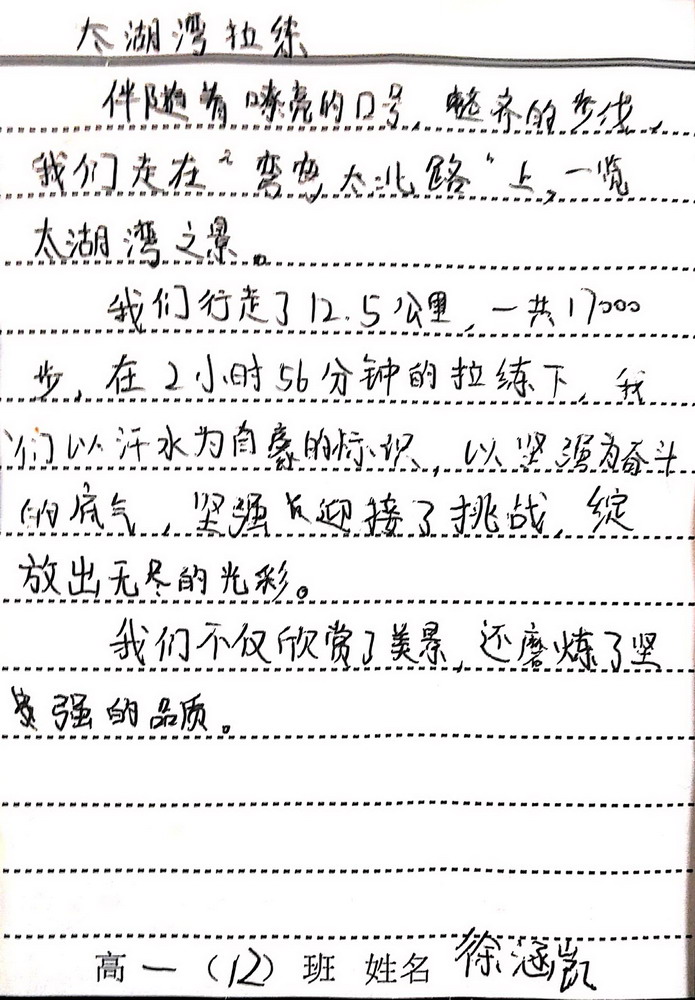 太湖湾拉练
伴随着嘹亮的口号,整齐的步伐,
我们走在“弯弯太北路”上,一览
太湖湾之景。
我们行走了12.5公里,一共17000
步,在2小时56分钟的拉练下,我
们以汗水为自豪的标识,以坚强为奋斗
的底气,坚强地迎接了挑战,绽
放出无尽的光彩。
我们不仅欣赏了美景,还磨炼了坚
强的品质。
高一(12)班 姓名 徐涵凯